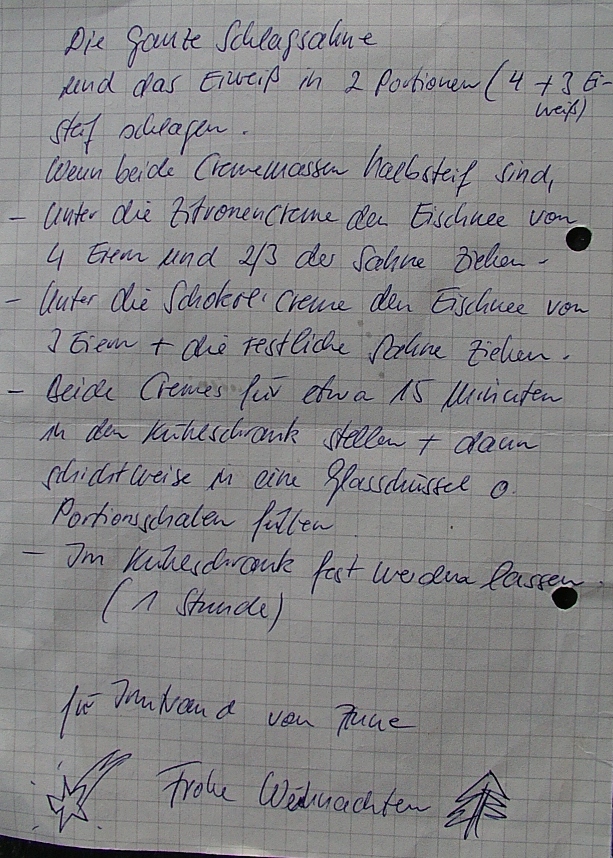 Die ganze Schlagsahne
und das Eiweiß in 2 Portionen (4 + 3 Ei-
weiß)
steif schlagen.
Wenn beide Crememassen halbsteif sind,
- Unter die Zitronencreme den Eischnee von
4 Eiern und 2/3 der Sahne ziehen.
- Unter die Schokol. Creme den Eischnee von
3 Eiern + die restliche Sahne ziehen.
- Beide Cremes für etwa 15 Minuten
in den Kühlschrank stellen + dann
schichtweise in eine Glasschüssel o.
Portionsschalen füllen
- Im Kühlschrank fest werden lassen.
(1 Stunde)
für von
Frohe Weihnachten